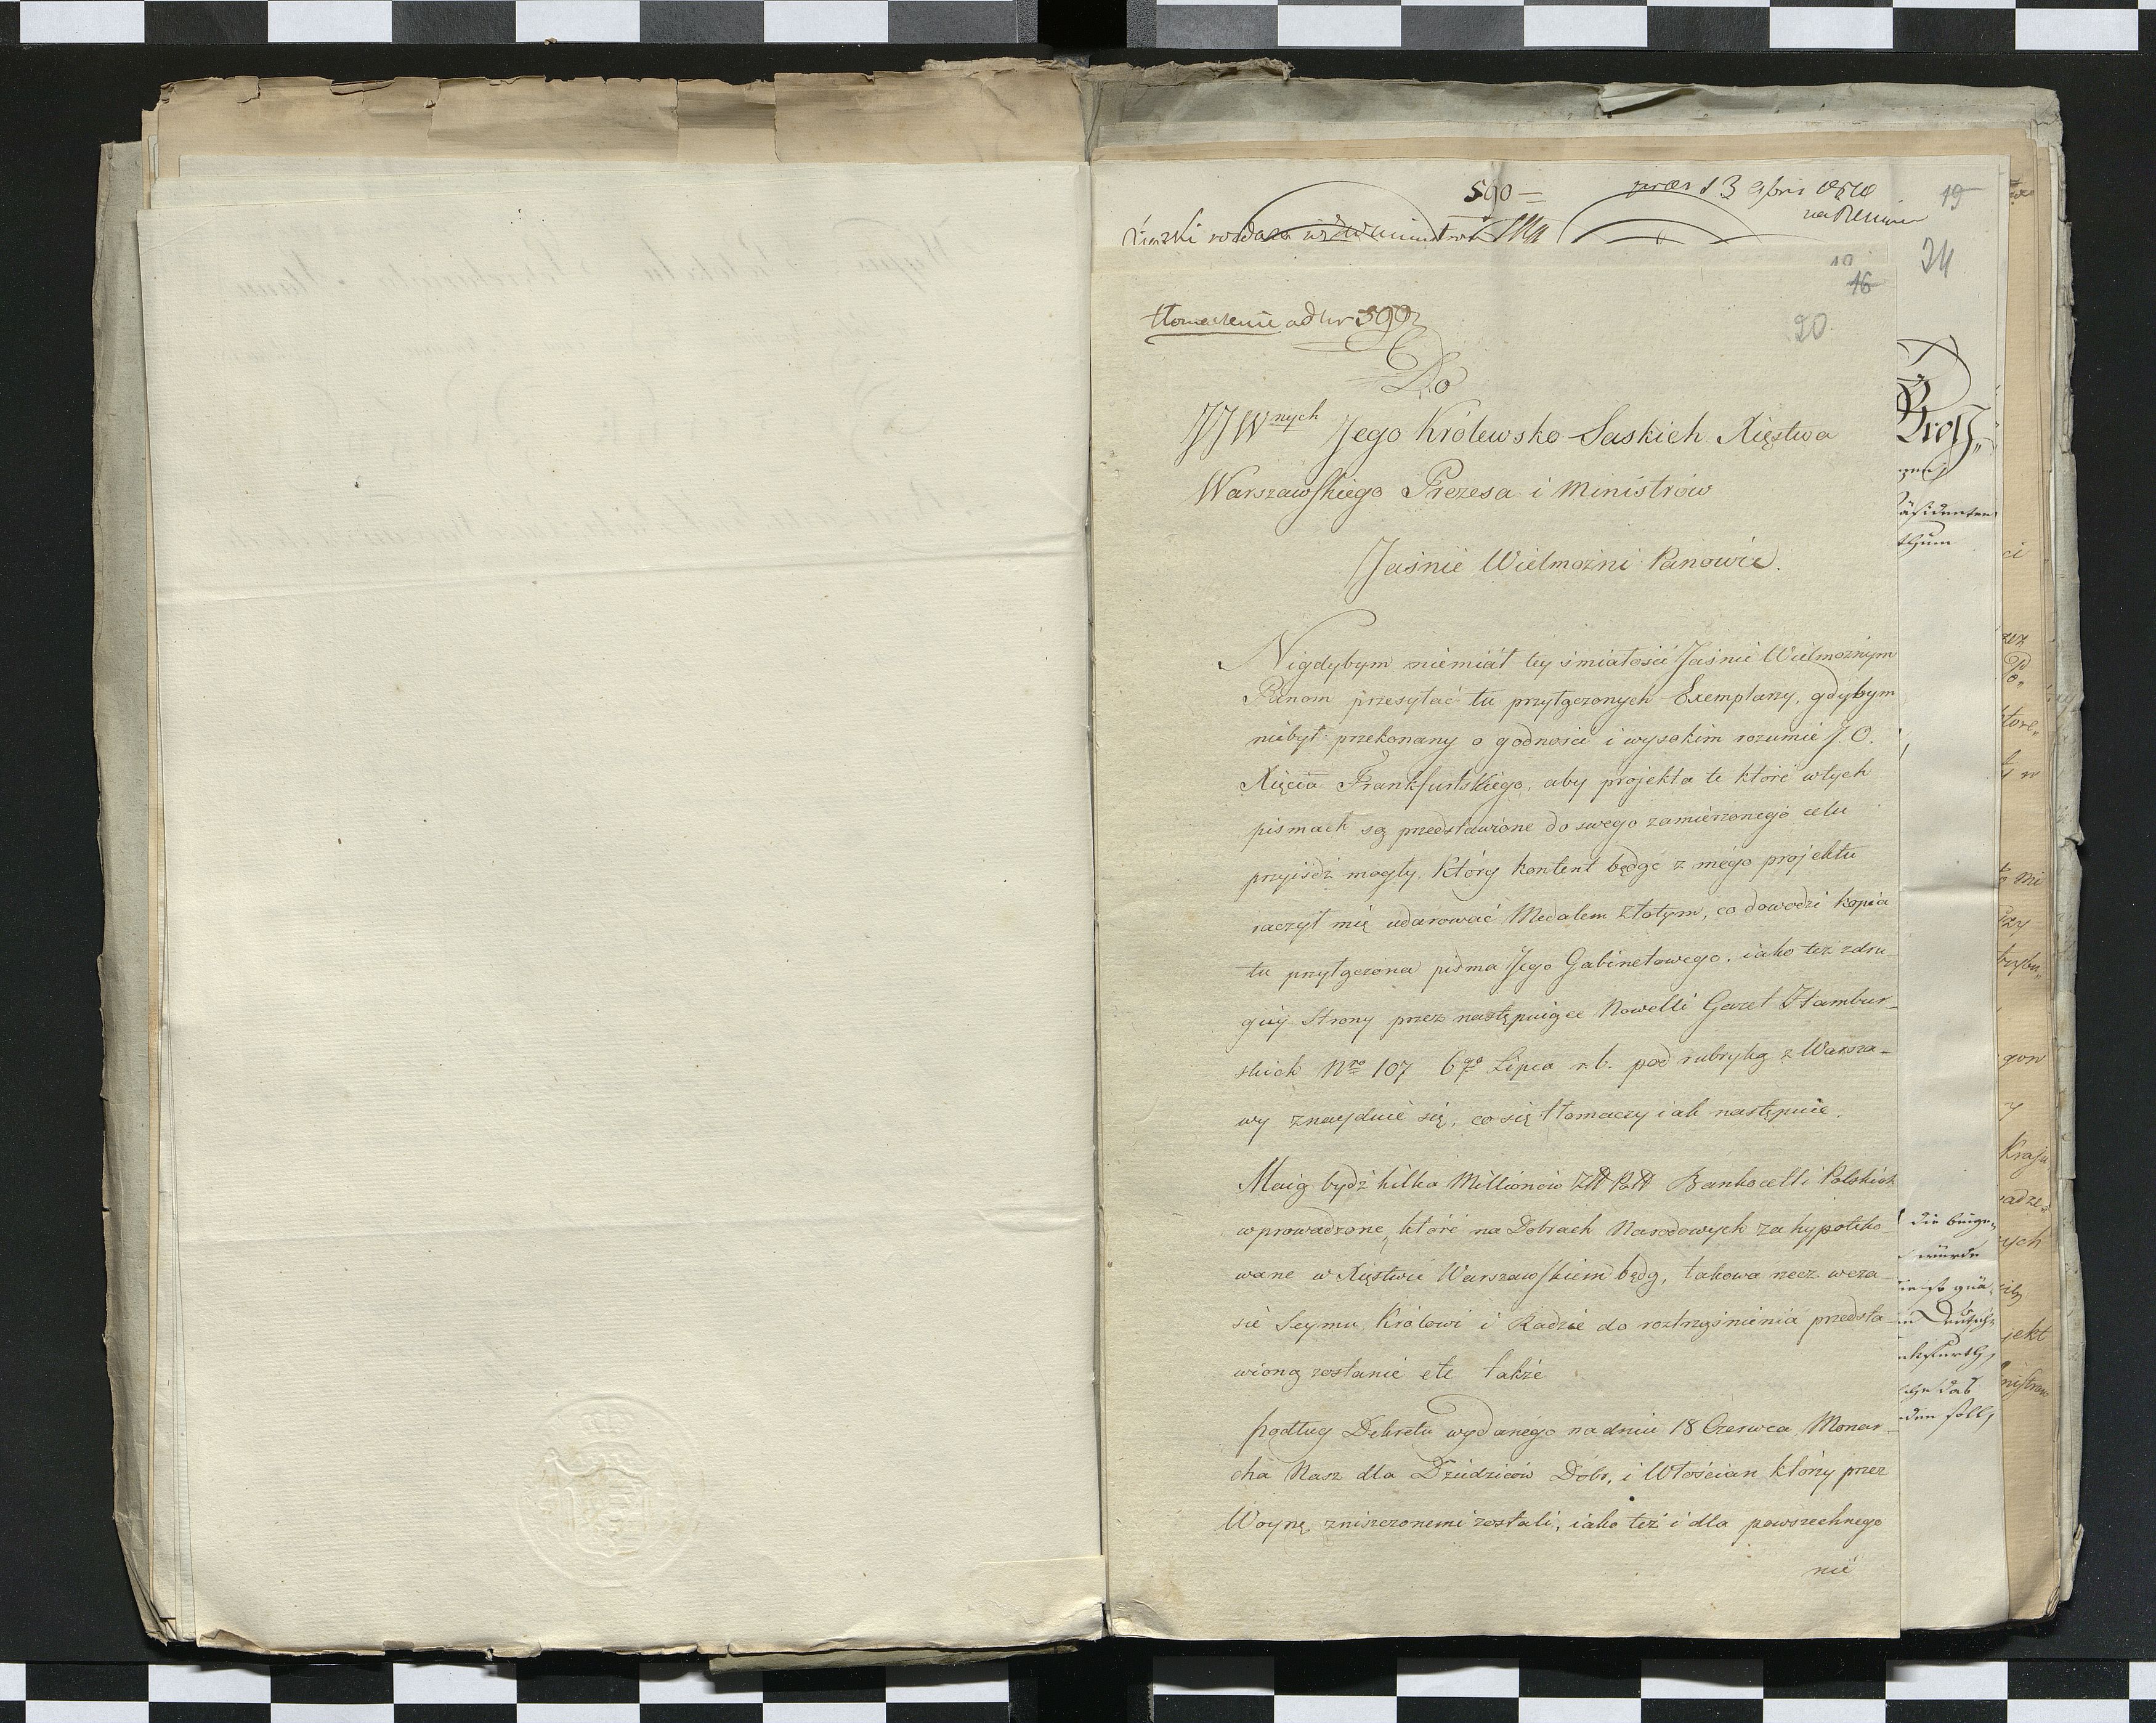 590
19
24
16
20
tłomaczenie ad nr 590
Do
JJWnych Jego Królewsko Saskich Xięstwa
Warszawskiego Prezesa i Ministrów
Jaśnie Wielmożni Panowie.
Nigdybym niemiał tey śmiałości Jaśnie Wielmożnym
Panom przesyłać tu przyłączonych Exemplarzy, gdybym
niebył przekonany o godności i wysokim rozumie J. O.
Xięcia Frankfurtskiego, aby projekta te które w tych
pismach są przedstawione do swego zamierzonego celu
przyiśdź mogły. Który kontent będąc z mégo projektu
raczył mię udarować Medalem złotym, co dowodzi kopia
tu przyłączona pisma Jego Gabinetowego. iako też z dru-
giiy Strony przez następuiące Nowelli Gazet Hambur-
skich Nro 107 6go Lipca r. b. pod rubryką z Warsza-
wy znayduie się, co się tłomaczy iak następuie.
Maią bydź kilka Millionów Złł Poll Bankocetli Polskich
wprowadzone, które na Dobrach Narodowych zahypoteko-
wane w Xięstwie Warszawskiem będą, takowa rzecz w cza-
sie Seymu Królowi i Radzie do roztrząśnienia przedsta-
wioną zostanie etc także
podług Dekretu wydanégo na dniu 18 Czerwca Monar-
cha Nasz dla Dziedziców Dobr, i Włościan którzy przez
Woynę zniszczonemi zostali, iako też i dla powszechnego
nie
äsidenten
thum
die beige-
würde
Deutsch-
den soll,
ci
zez
tore„
Mi
gow
y
Kraju
adze„
ych
jekt